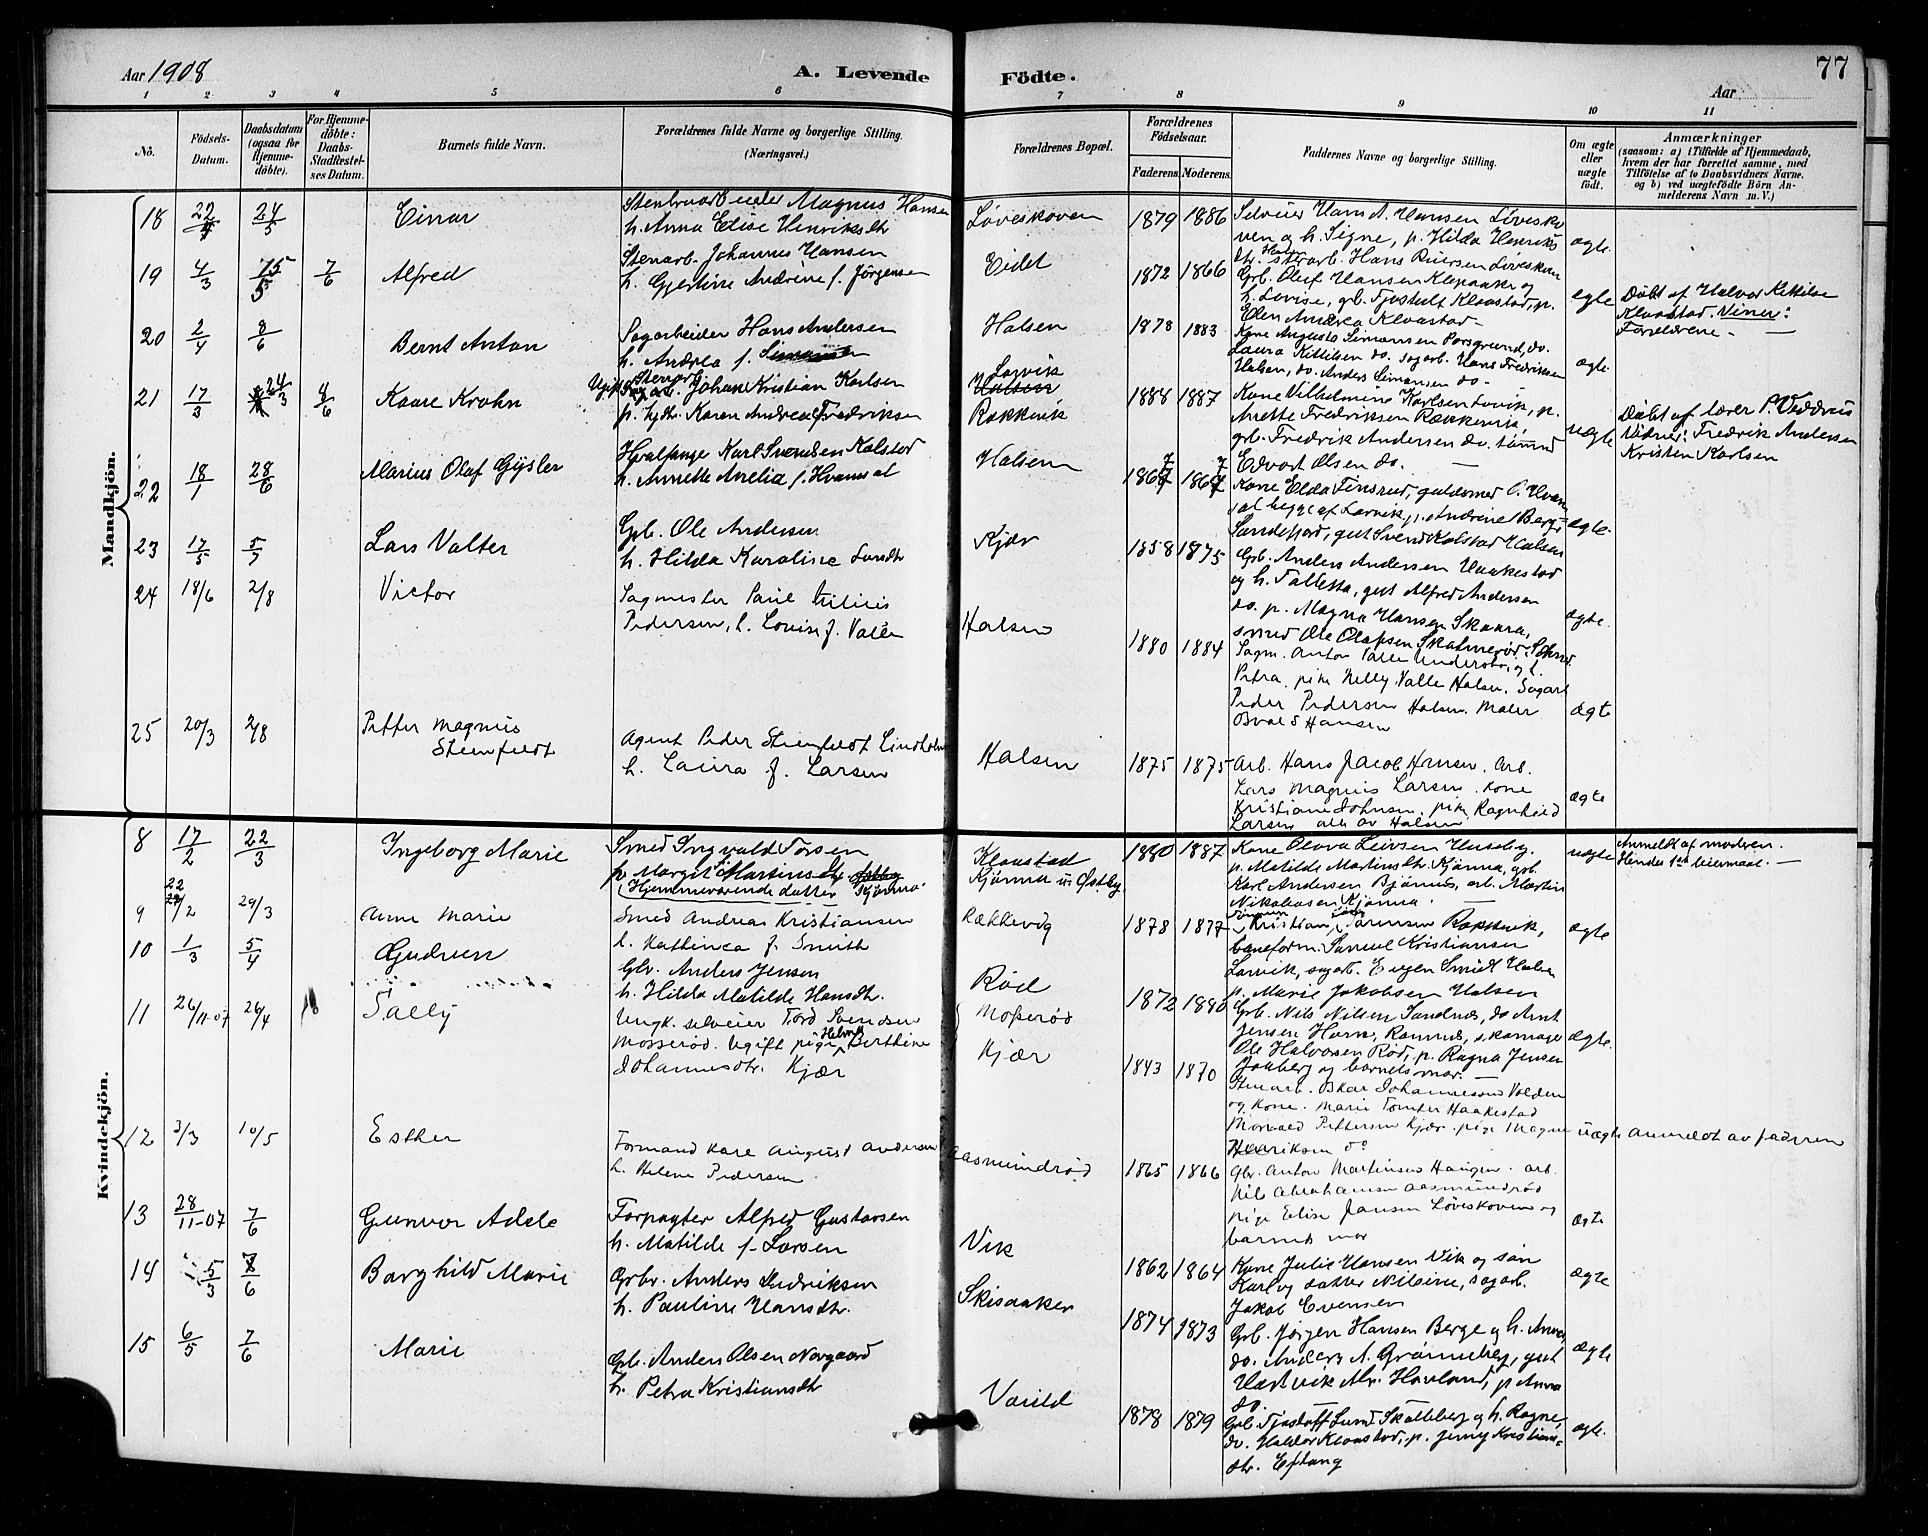 Aar 1908
A. Levende
Födte.
77
Aar
1 2 3 4 5 6 7 8 9 10 11
No.
Födsels-
Datum.
Daabsdatum
(ogsaa for
Hjemme-
döbte).
For Hjemme-
döbte:
Daabs-
Stadfæstel-
ses Datum.
Barnets fulde Navn.
Forældrenes fulde Navne og borgerlige Stilling.
(Næringsvei.)
Forældrenes Bopæl.
Forældrenes
Födselsaar.
Faderens. Moderens.
Faddernes Navne og borgerlige Stilling.
Om ægte
eller
uægte
födt.
Anmærkninger
(saasom: a) i Tilfælde af Hjemmedaab,
hvem der har forrettet samme, med
Tilföielse af to Daabsvidners Navne.
og b) ved uægtefödte Börn An-
melderens Navn m. V.)
Mandkjön.
18 24/5 Einar
Magnus Hansen
h. Anna Elise Henriksdtr
Løveskoven 1879 1886
Selveier Hans A. Hansen Løvesko
ven og h. Signe, p. Hilda Henriks
dtr. Hans Løveskoven
ægte.
19 4/3 15/5 7/6 Alfred
Stenarb. Johannes Hansen
h. Gjertine Andrine f. Jörgensen
Eidet 1872 1866
Grb. Oluf Hansen Klepaaker og
h. Lovise, gb. Tjostulf Klaastad, p.
Elen Andrea Klaastad
ægte
Døbt af Halvor Kittilse
Klaastad. Viner:
Forældrene
20 2/4 8/6 Bernt Anton
Sagarbeider Hans Andersen
h. Andrea f. Simonsen
Halsen 1878 1883
Kone Augusta Simonsen Porsgrund, do.
Laura Kittilsen do. sagarb. Hans Fredriksen
Halsen, do. Anders Simonsen do
ægte.
21 17/3 24/3 4/6 Kaare Krohn
Johan Kristian Karlsen
p. Karen Andrea Fredriksen
Larvik
Halsen
Rakkevik 1888 1887
Kone Vilhelmine Karlsen Larvik, p.
Anette Fredriksen Rækkevik,
grb. Fredrik Andersen do. tömmd
Edvart Olsen do.
uægte
Döbt af lærer P.
Vidner: Fredrik Andersen
Kristen Karlsen
22 18/1 28/6 Marius Olaf Gjsler
Hvalfanger Karl Svendsen Kolstad
h. Annette Amelia f. Hvamsal
Halsen 1867 1867
Kone Elda Finsrud, guldsmed O. Hvam
sal begge af Larvik, p. Andrine Berg
Sandefjord, gut Svend Kolstad Halsen
ægte.
23 17/5 5/7 Lars Valter
Grb. Ole Andersen
h. Hilda Karoline Larsdtr
Kjær 1858 1875
Grb. Anders Andersen Haakestad
og h. Talletta, gut Alfred Andersen
do. p. Magna Hansen Skaara,
smed Ole Olafsen
ægte.
24 18/6 2/8 Victor
Sagmester Paul Julius
Pedersen, h. Louise f. Valle
Halsen 1880 1884
Sagm. Anton Valle og h.
Petra, pike Nelly Valle Halsen. Sagarb
Peder Pedersen Halsen. Maler
Osvald Hansen
ægte
25 20/3 2/8 Petter Magnus
Steinfeldt
Agent Peder Steinfeldt Lindholm
h. Laura f. Larsen
Halsen 1875 1875
Arb. Hans Jacob Hansen. Arb.
Lars Magnus Larsen. Kone
Kristiane Johnsen, pike Ragnhild
Larsen alle av Halsen
ægte
Kvindekjön.
8 17/2 22/3 Ingeborg Marie
Smed Ingvald Torsen
p. Margit Martinsdtr. Östby
(Hjemmeværende datter Kjönna.
Klaastad
Kjönna u. Østby 1880 1887
Kone Olova Leivsen Huseby.
p. Matilde Martinsdtr. Kjönna, grb.
Karl Andersen Bjönnes, arb. Martin
Nikolaisen Kjönna.
uægte
Anmeldt af moderen.
Hendes 1ste leiermaal.
9 22/2 29/3 Anne Marie
Smed Andreas Kristiansen
h. Kathinca f. Smith
Rækkevig 1878 1877
Kristian Rakkevik,
baneform. Samuel Kristiansen
Larvik, sagarb. Eugen Smidt Halsen
p. Marie Jakobsen Halsen
ægte
10 1/3 5/4 Gudrun
Gbr. Anders Jensen
h. Hilda Matilde Hansdtr.
Röd 1872 1880
Grb. Nils Nilsen Sandnes, do Arnt
Jensen Hare, Ramnes, skomager
Ole Halvorsen Röd, p. Ragna Jensen
Jonberg og barnets mor.
ægte.
11 26/11-07 26/4 Sally
Ungk. selveier Tord Svendsen
Mosserød. Ugift pige Helma Berthine
Johannesdtr. Kjær
Mosserød
Kjær 1843 1870
Stenarb. Oskar Johannessen Volden
og kone. Marie Haakestad
Pettersen Kjær. pige Magne
Henriksen do
uægte anmeldt av faderen
12 3/3 10/5 Esther
Formand Karl August Andersen
h. Helene Pedersen
Aasmundrød 1865 1866
Gbr. Anton Martinsen Haugen. arb.
Nils Abrahamsen Aasmundrød
pige Elise Jansen Løveskoven og
barnets mor
ægte
13 28/11-07 7/6 Gunvor Adele
Forpagter Alfred Gustavsen
h. Matilde f. Larsen
Vik 1862 1864
Kone Julie Hansen Vik og sön
Karl og datter Nilsine, sagarb.
Jakob Evensen
ægte
14 5/3 7/6 Borghild Marie
Grbr. Anders Fredriksen
h. Pauline Hansdtr.
Skisaaker 1874 1873
Grb. Jörgen Hansen Berge og h. Anna,
do. Anders A. Grönneberg, gut
Hartvik Havland, p. Anna
do.
ægte
15 6/5 7/6 Marie
Gb. Anders Olsen Norgaard
h. Petra Kristiansdtr
Varild 1878 1879
Grb. Tjostoff Lund Skalleberg og h. Ragne,
do. Halvor Klaastad, p. Jenny Kristians-
dtr. Eftang
ægte.